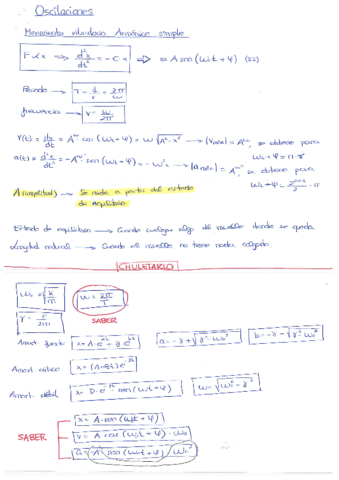 Oscilaciones
Movimiento vibratorio Armónico simple
F α x ⟹ d²x/dt² = -C x ⟹ x = A sen (ωt + φ) (SI)
Período → T = 1/ν = 2π/ω
frecuencia → ν = ω/2π
v(t) = dx/dt = Aω cos (ωt + φ) = ω √(A² - x²) → |vmax| = Aω, se obtiene para ωt + φ = nπ
a(t) = d²x/dt² = -Aω² sen (ωt + φ) = -ω²x → |amax| = Aω², se obtiene para ωt + φ = (2n+1)/2 · π
A (amplitud) → Se mide a partir del estado
de equilibrio
Estado de equilibrio → Cuando cuelgas algo del muelle donde se queda
Longitud natural → Cuando el muelle no tiene nada colgado.
CHULETARIO
ω₀ = √(K/m)
ω = 2π/T
SABER
x = A·e^at + B·e^bt
a = -γ + √(γ² - ω₀²)
b = -γ - √(γ² - ω₀²)
Amort. crítico
x = (A + Bt) e^-γt
Amort. débil
x = D·e^-γt · sen (ωt + φ)
ω = √(ω₀² - γ²)
SABER
x = A·sen (ω₀t + φ)
v = A·cos (ω₀t + φ) · ω₀
a = -A sen (ω₀t + φ) · ω₀²